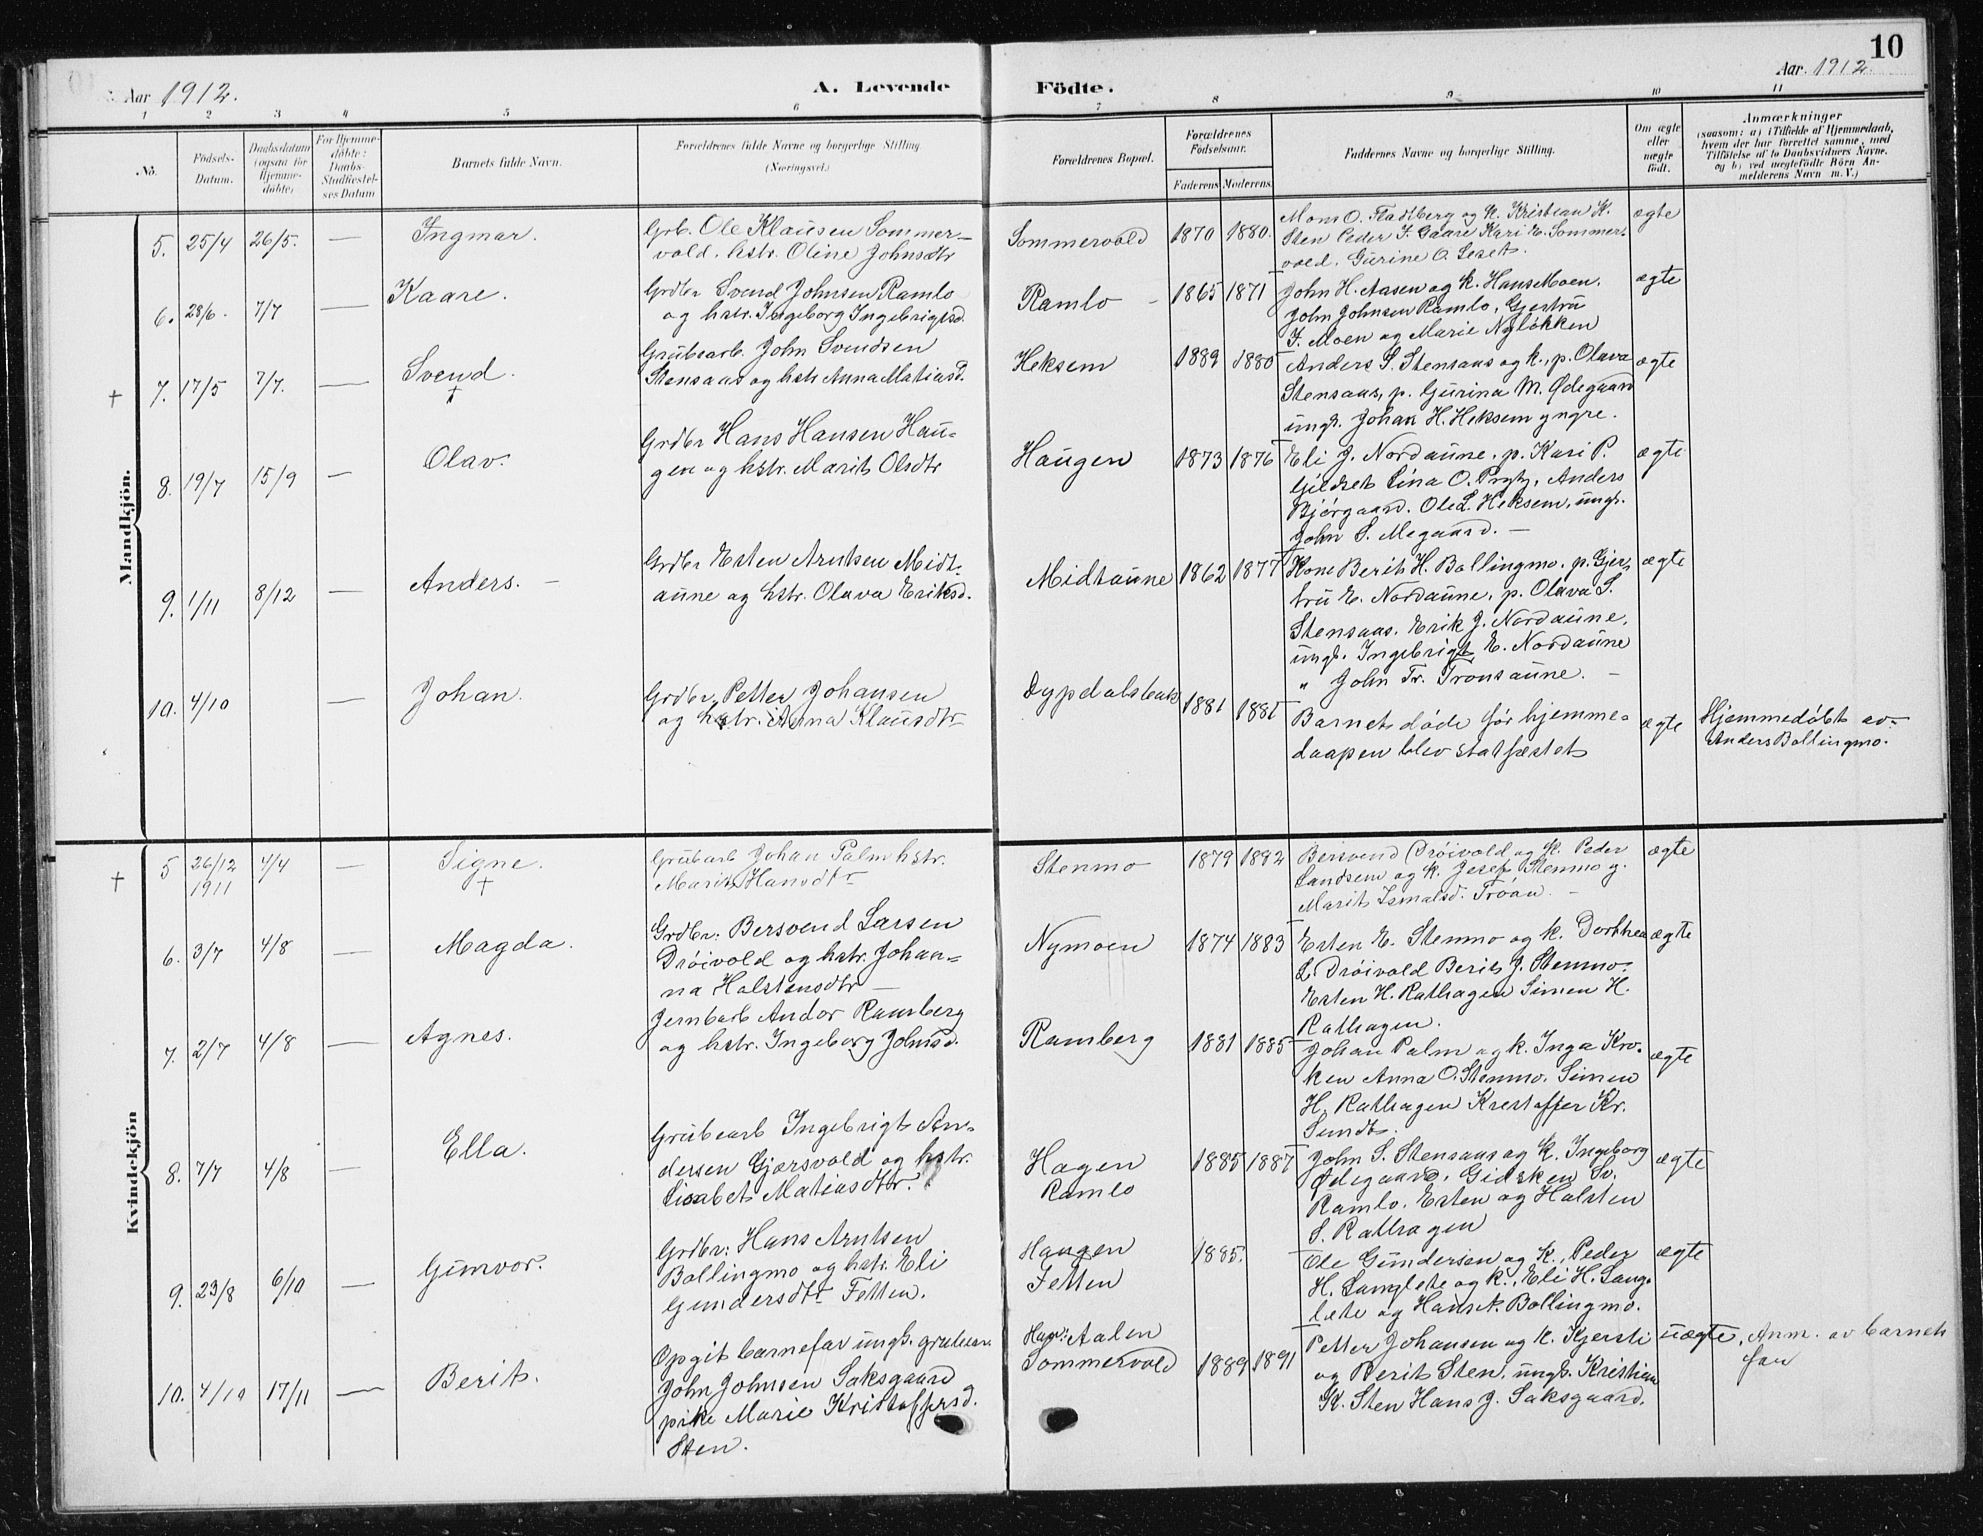 10
Aar 1912.
A. Levende
Födte.
Aar. 1912.
1 2 3 4 5 6 7 8 9 10 11
No.
Födsels-
Datum.
Daabsdatum
(ogsaa for
Hjemme-
döbte)
For Hjemme-
döbte:
Daabs-
Stadfæstel-
ses Datum
Barnets fulde Navn.
Forældrenes fulde Navne og borgerlige Stilling
(Næringsvei.)
Forældrenes Bopæl.
Forældrenes
Födselsaar.
Faderens Moderens
Faddernes Navne og borgerlige Stilling.
Om ægte
eller
uægte
födt.
Anmærkninger
(saasom: a) i Tilfælde af Hjemmedaab,
hvem der har forrettet samme, med
Tilföielse af to Daabsvidners Navne.
og b) ved uægtefödte Börn An-
melderens Navn m. V.)
Mandkjön.
5. 25/4 26/5. —
Ingmar.
Grb. Ole Klausen Sommer-
vold. hstr. Oline Johnsdtr
Sommervold
1870 1880.
Mons O. Fladtberg og k. Kristian K.
Sten Peder J. Gaare Kari E. Sommer-
vold. Gurine O.
ægte
6. 28/6. 7/7 —
Kaare.
Grdbr Svend Johnsen Ramlo
og hstr. Ingeborg Ingebrigtsd.
Ramlo -
1865 1871
John H. Aasen og k. Hans Moen.
John Johnsen Ramlo, Gjestru
J. Moen og Marie Nyløkken
ægte
† 7. 17/5 7/7. —
Svend.
†
Grubearb. John Svendsen
Stensaas og hstr Anna Matiasd.
Heksem
1889 1880
Anders S. Stensaas og k., p. Olava
Stensaas, p. Gurina M. Ødegaard
ungk. Johan H. Heksem yngre.
ægte
8. 19/7 15/9 —
Olav.
Grdbr Hans Hansen Hau-
gen og hstr. Marit Olsdtr
Haugen
1873 1876
Eli J. Nordaune, p. Kari P.
Gildset Lina O. Prytz, Anders
Bjørgaard. Ole L. Heksem, ungk.
John S. Megaard. —
ægte
9. 1/11 8/12 —
Anders. —
Grdbr Esten Arntsen Midt-
aune og hstr. Olava Eriksd.
Midtaune
1862 1877
Kone Berit H. Bollingmo. p. Gjer-
tru E. Nordaune, p. Olava S.
Stensaas. Erik J. Nordaune,
ungk. Ingebrigt E. Nordaune
" John Tr. Tronsaune. —
ægte
10. 4/10 —
Johan.
Grdbr. Petter Johansen
og hstr. Anna Klausdtr
Dypdalsbak
1881 1881
Barnet døde før hjemme-
daapen blev statfæstet
ægte
Hjemmedøbt av
Anders Bollingmo.
Kvindekjön
† 5 26/12
1911
4/4 —
Signe.
†
Grubearb Johan Palm hstr.
Marit Hansdtr
Stenmo
1879 1892
Bersvend Drøivold og k. Peder
Sandsem og k. Josef Stenmo g.
Marit Ismalsd. Troan. —
ægte
6. 3/7 4/8 —
Magda.
Grdbr. Bersvend Larsen
Drøivold og hstr. Johan-
na Halstensdtr —
Nymoen
1874 1883
Esten E. Stenmo og k. Dorthea
L. Drøivold Berit J. Stenmo.
Esten H. Rathagen Simen H.
Rathagen.
ægte
7. 2/7 4/8 —
Agnes.
Jernbarb Andor Ramberg
og hstr. Ingeborg Johnsd.
Ramberg
1881 1885
Johan Palm og k. Inga Kro-
ken Anna O. Stenmo. Simen
H. Rathagen Krestoffer Kr.
Sundt.
ægte
8. 7/7 4/8 —
Ella.
Grubearb Ingebrigt An-
dersen Gjærsvold og hstr.
Lisabet Matiasdtr.
Hagen
Ramlo
1885 1887
John S. Stensaas og k. Ingeborg
Ødegaard, Gidsken Sv.
Ramlo. Esten og Halsten
S. Rathagen
ægte
9. 23/8 6/10 —
Gunvor.
Grdbr: Hans Arntsen
Bollingmo og hstr. Eli
Gundersdtr Fetten.
Haugen
Fetten
1885.
Ole Gundersen og k., Peder
H. Langlete og k., Eli H. Lang-
lete og Hans A. Bollingmo.
ægte
10. 4/10 17/11 —
Berit.
Opgit barnefar ungk. grubearb.
John Johnsen Saksgaard
pike Marie Kristoffersd.
Sten.
Aalen
Sommervold
1889 1891
Petter Johansen og k. Kjersti
og Berit Sten, ungk. Kristian
K. Sten Hans J. Saksgaard.
uægte. Anm. av barnets
far